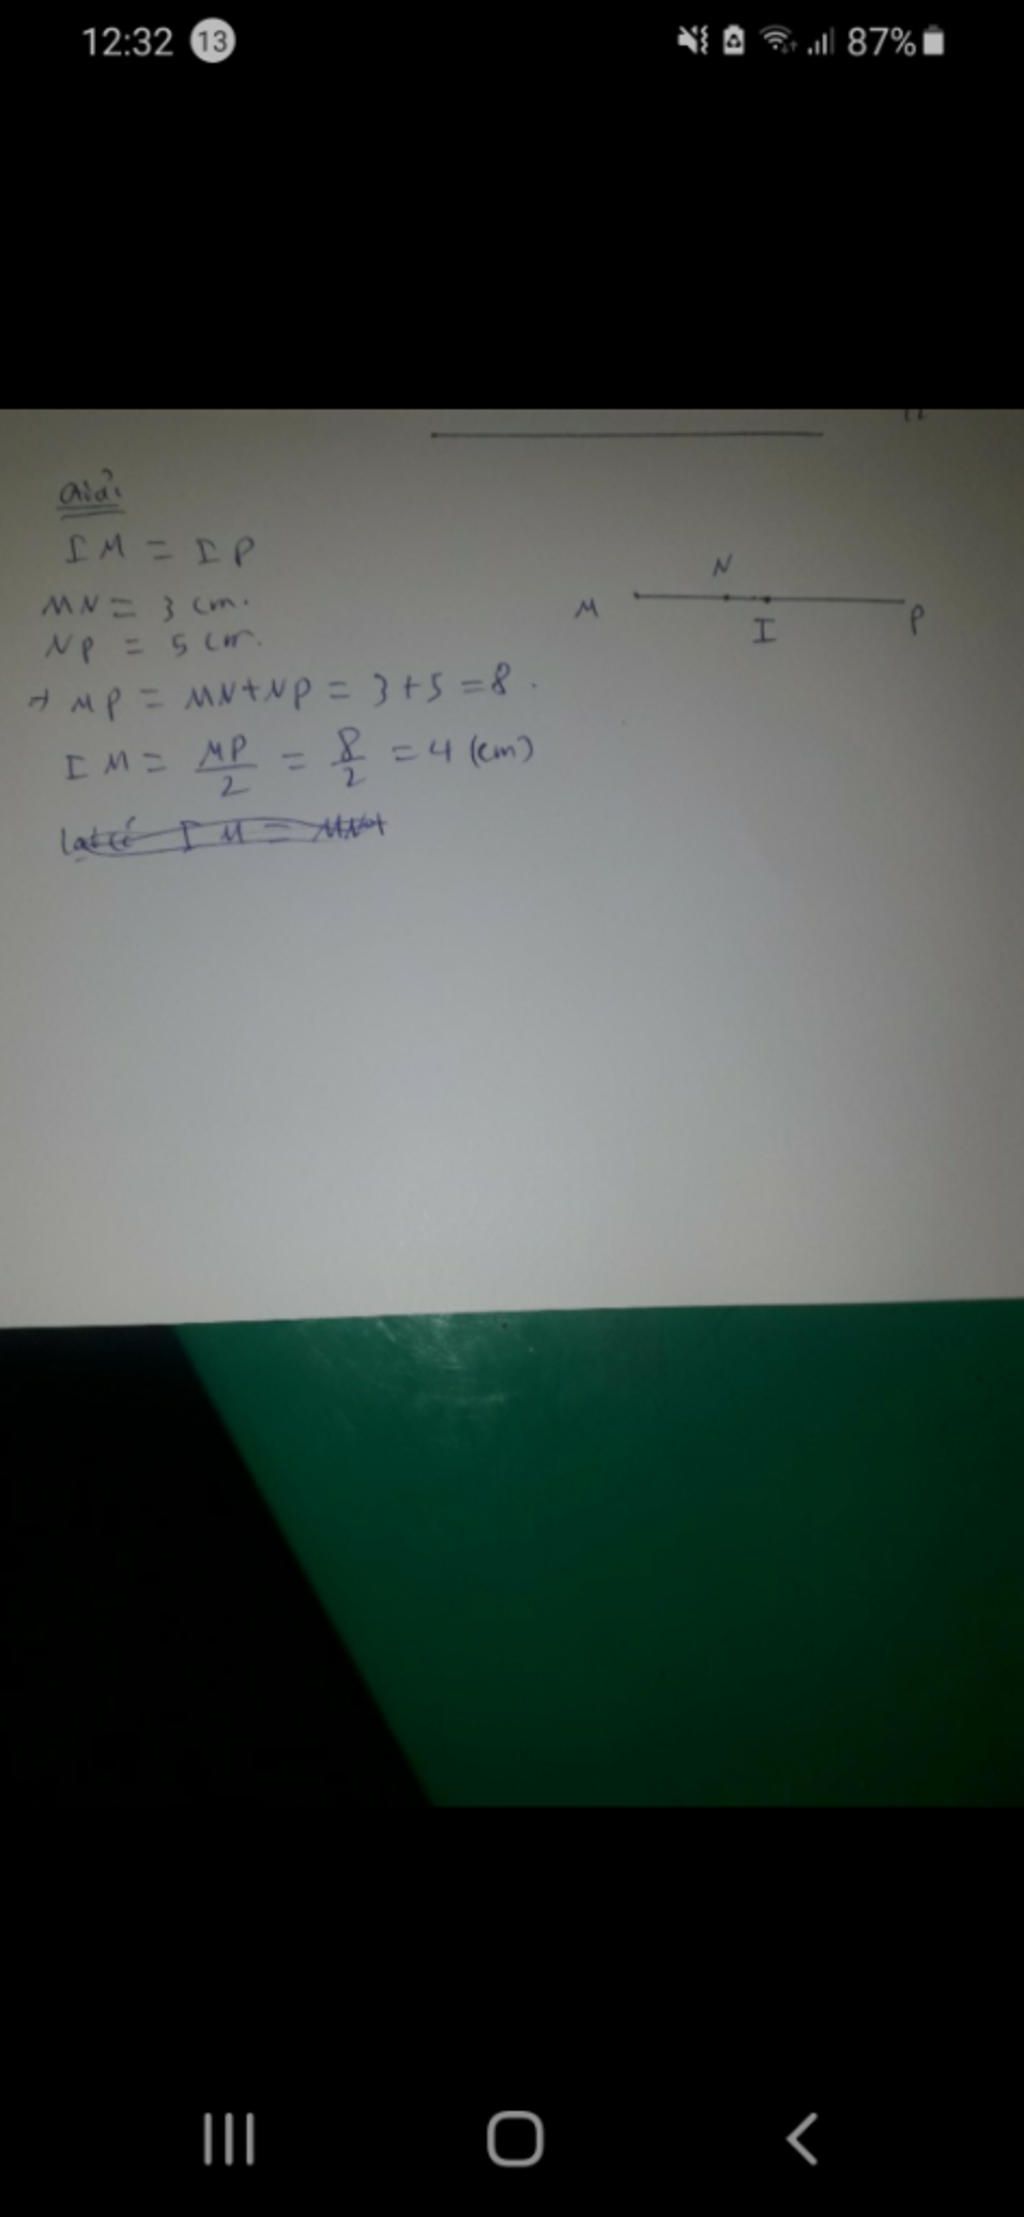 12:32 13 87%
Giải
IM = IP
MN = 3 cm.
NP = 5 cm.
N
M
I
P
→ MP = MN+NP = 3+5 = 8.
IM = MP/2 = 8/2 = 4 (cm)
IM =